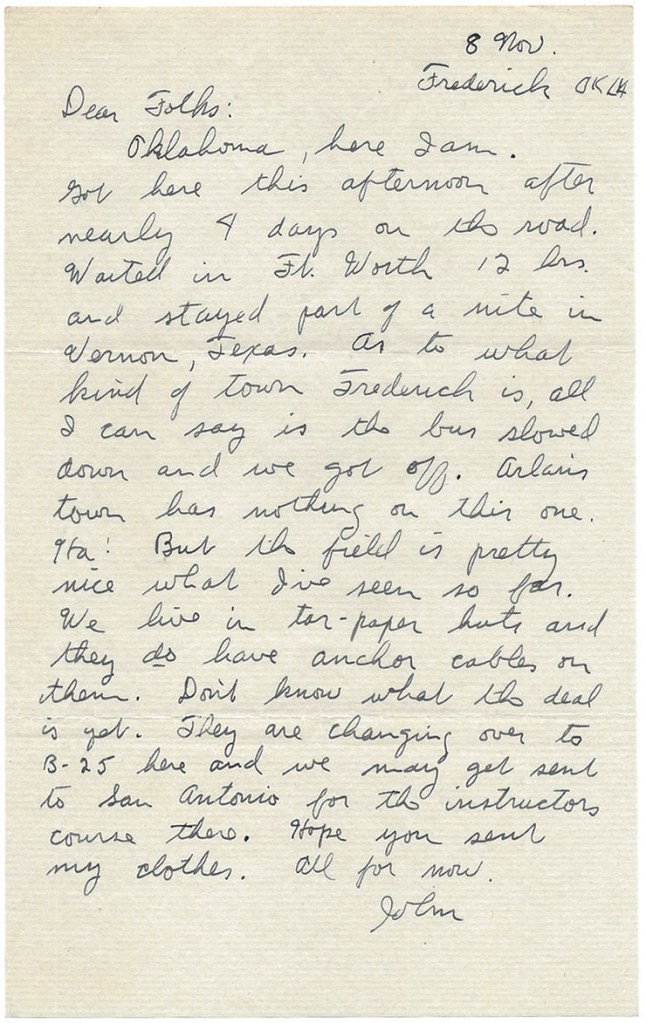 8 Nov.
Frederick OKLA
Dear Folks:
Oklahoma, here I am.
Got here this afternoon after
nearly 4 days on the road.
Waited in Ft. Worth 12 hrs.
and stayed part of a nite in
Vernon, Texas. As to what
kind of town Frederick is, all
I can say is the bus slowed
down and we got off.
town has nothing on this one.
Ha! But the field is pretty
nice what I've seen so far.
We live in tar-paper huts and
they do have anchor cables on
them. Don't know what the deal
is yet. They are changing over to
B-25 here and we may get sent
to San Antonio for the instructors
course there. Hope you sent
my clothes. All for now.
John